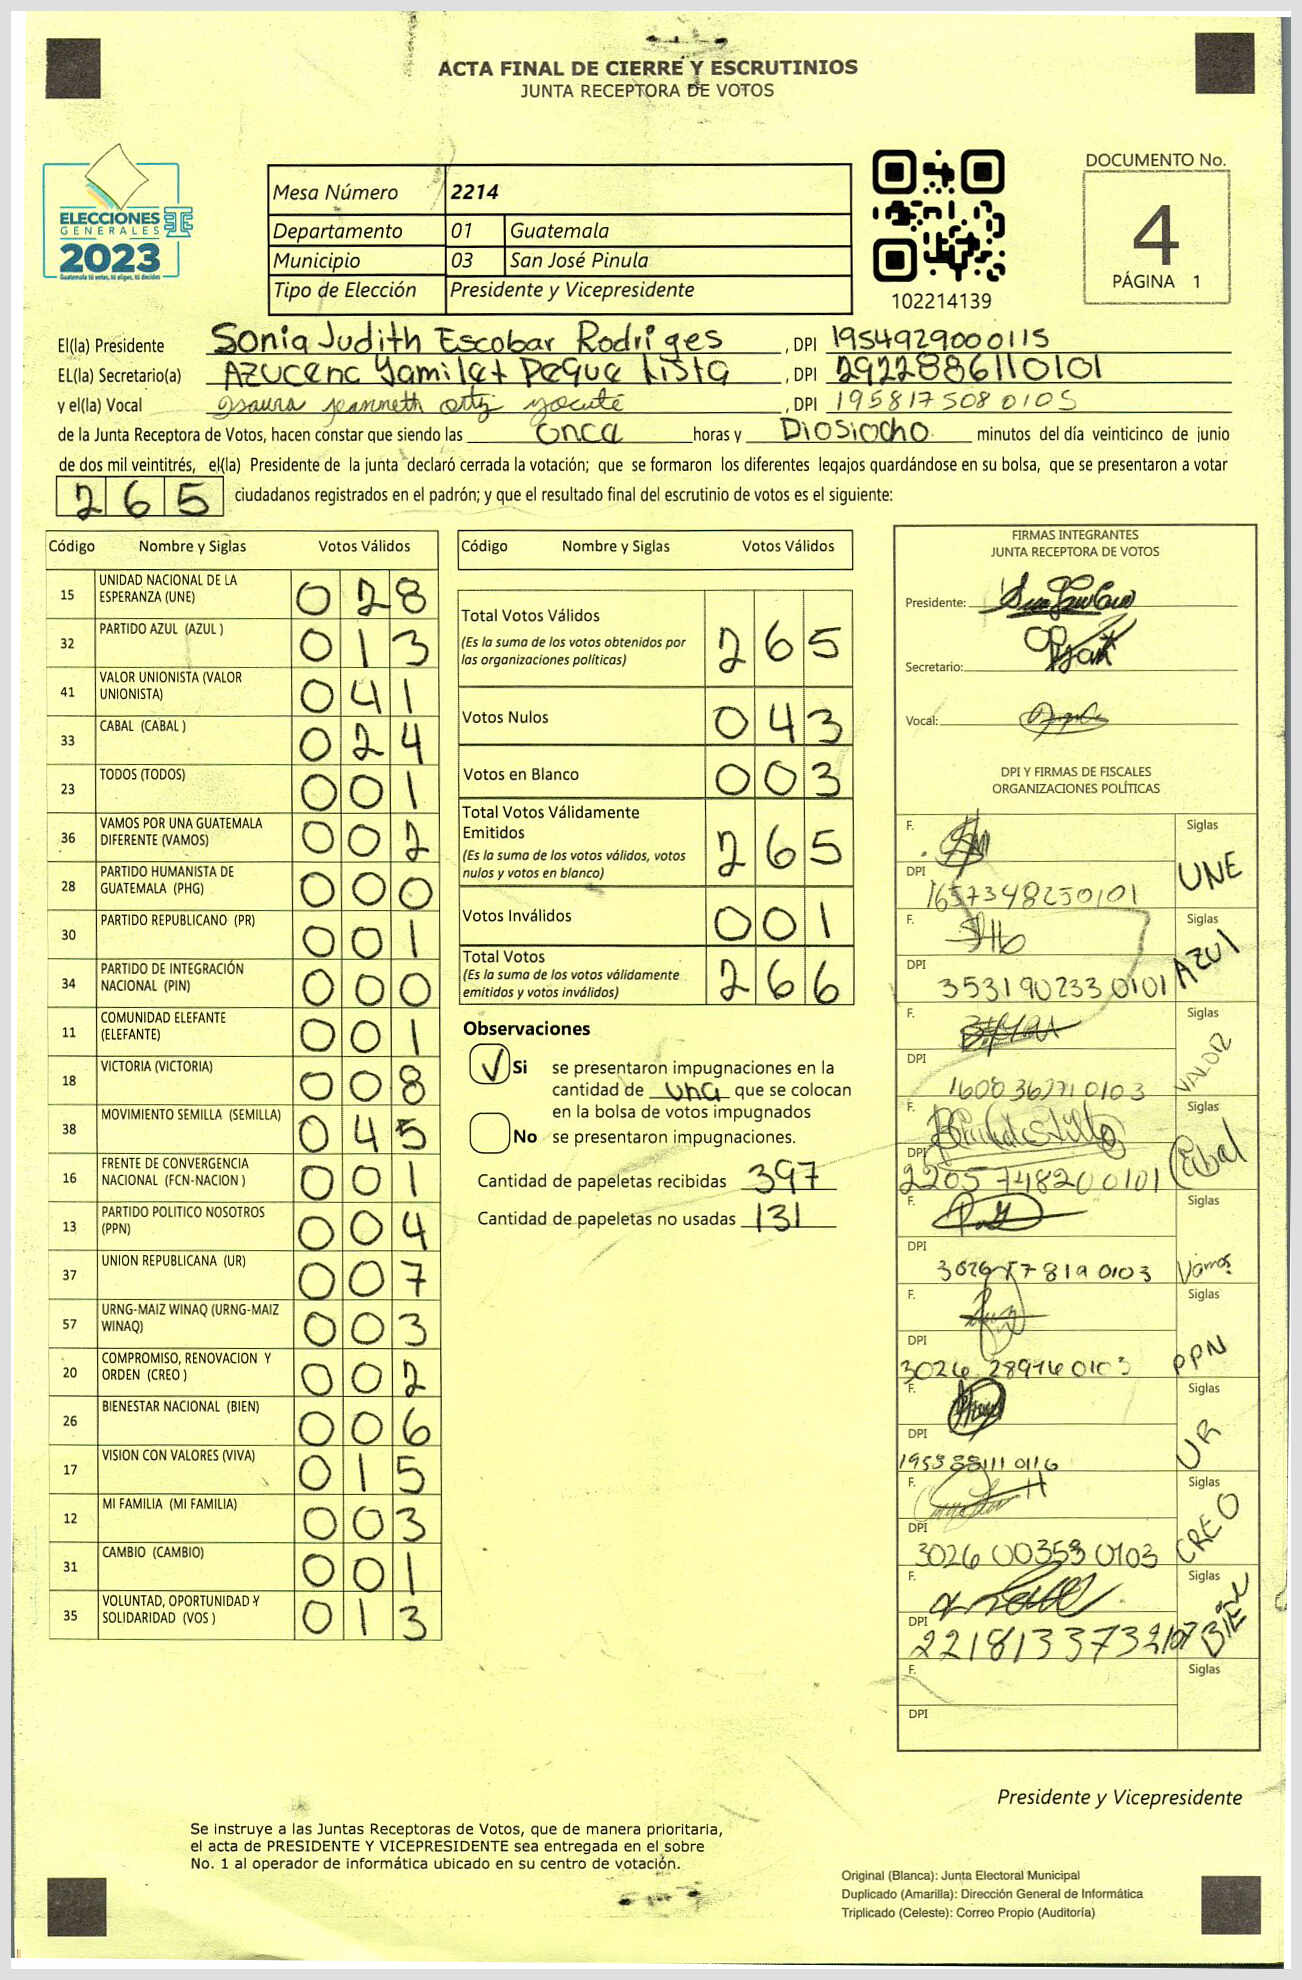 ACTA FINAL DE CIERRE Y ESCRUTINIOS
JUNTA RECEPTORA DE VOTOS
ELECCIONES
GENERALES
2023
Guatemala tú votas, tú eliges, tú decides
Mesa Número 2214
Departamento 01 Guatemala
Municipio 03 San José Pinula
Tipo de Elección Presidente y Vicepresidente
102214139
DOCUMENTO No.
4
PÁGINA 1
El(la) Presidente Sonia Judith Escobar Rodriges , DPI 1954929000115
EL(la) Secretario(a) Azucena Yamilet Peque Lista , DPI 2922886110101
y el(la) Vocal Isaura Jeanneth Ortiz Yocuté , DPI 1958175080105
de la Junta Receptora de Votos, hacen constar que siendo las onca horas y Diosiocho minutos del día veinticinco de junio
de dos mil veintitrés, el(la) Presidente de la junta declaró cerrada la votación; que se formaron los diferentes legajos guardándose en su bolsa, que se presentaron a votar
265 ciudadanos registrados en el padrón; y que el resultado final del escrutinio de votos es el siguiente:
Código Nombre y Siglas Votos Válidos
15 UNIDAD NACIONAL DE LA ESPERANZA (UNE) 028
32 PARTIDO AZUL (AZUL ) 013
41 VALOR UNIONISTA (VALOR UNIONISTA) 041
33 CABAL (CABAL ) 024
23 TODOS (TODOS) 001
36 VAMOS POR UNA GUATEMALA DIFERENTE (VAMOS) 002
28 PARTIDO HUMANISTA DE GUATEMALA (PHG) 000
30 PARTIDO REPUBLICANO (PR) 001
34 PARTIDO DE INTEGRACIÓN NACIONAL (PIN) 000
11 COMUNIDAD ELEFANTE (ELEFANTE) 001
18 VICTORIA (VICTORIA) 008
38 MOVIMIENTO SEMILLA (SEMILLA) 045
16 FRENTE DE CONVERGENCIA NACIONAL (FCN-NACION ) 001
13 PARTIDO POLITICO NOSOTROS (PPN) 004
37 UNION REPUBLICANA (UR) 007
57 URNG-MAIZ WINAQ (URNG-MAIZ WINAQ) 003
20 COMPROMISO, RENOVACION Y ORDEN (CREO ) 002
26 BIENESTAR NACIONAL (BIEN) 006
17 VISION CON VALORES (VIVA) 015
12 MI FAMILIA (MI FAMILIA) 003
31 CAMBIO (CAMBIO) 001
35 VOLUNTAD, OPORTUNIDAD Y SOLIDARIDAD (VOS ) 013
Código Nombre y Siglas Votos Válidos
Total Votos Válidos 265
(Es la suma de los votos obtenidos por
las organizaciones políticas)
Votos Nulos 043
Votos en Blanco 003
Total Votos Válidamente
Emitidos 265
(Es la suma de los votos válidos, votos
nulos y votos en blanco)
Votos Inválidos 001
Total Votos 266
(Es la suma de los votos válidamente
emitidos y votos inválidos)
Observaciones
Si se presentaron impugnaciones en la
cantidad de una que se colocan
en la bolsa de votos impugnados
No se presentaron impugnaciones.
Cantidad de papeletas recibidas 397
Cantidad de papeletas no usadas 131
FIRMAS INTEGRANTES
JUNTA RECEPTORA DE VOTOS
Presidente:
Secretario:
Vocal:
DPI Y FIRMAS DE FISCALES
ORGANIZACIONES POLÍTICAS
F. Siglas
DPI 1657348250101 UNE
F. Siglas
DPI 3531902330101 AZUl
F. Siglas
DPI VALOR
F. Siglas
DPI 2205748200101 Cabal
F. Siglas
DPI Vamos
F. Siglas
DPI PPN
F. Siglas
DPI UR
F. Siglas
DPI 3026003530103 CREO
F. Siglas
DPI BIEN
F. Siglas
DPI
Presidente y Vicepresidente
Se instruye a las Juntas Receptoras de Votos, que de manera prioritaria,
el acta de PRESIDENTE Y VICEPRESIDENTE sea entregada en el sobre
No. 1 al operador de informática ubicado en su centro de votación.
Original (Blanca): Junta Electoral Municipal
Duplicado (Amarilla): Dirección General de Informática
Triplicado (Celeste): Correo Propio (Auditoría)